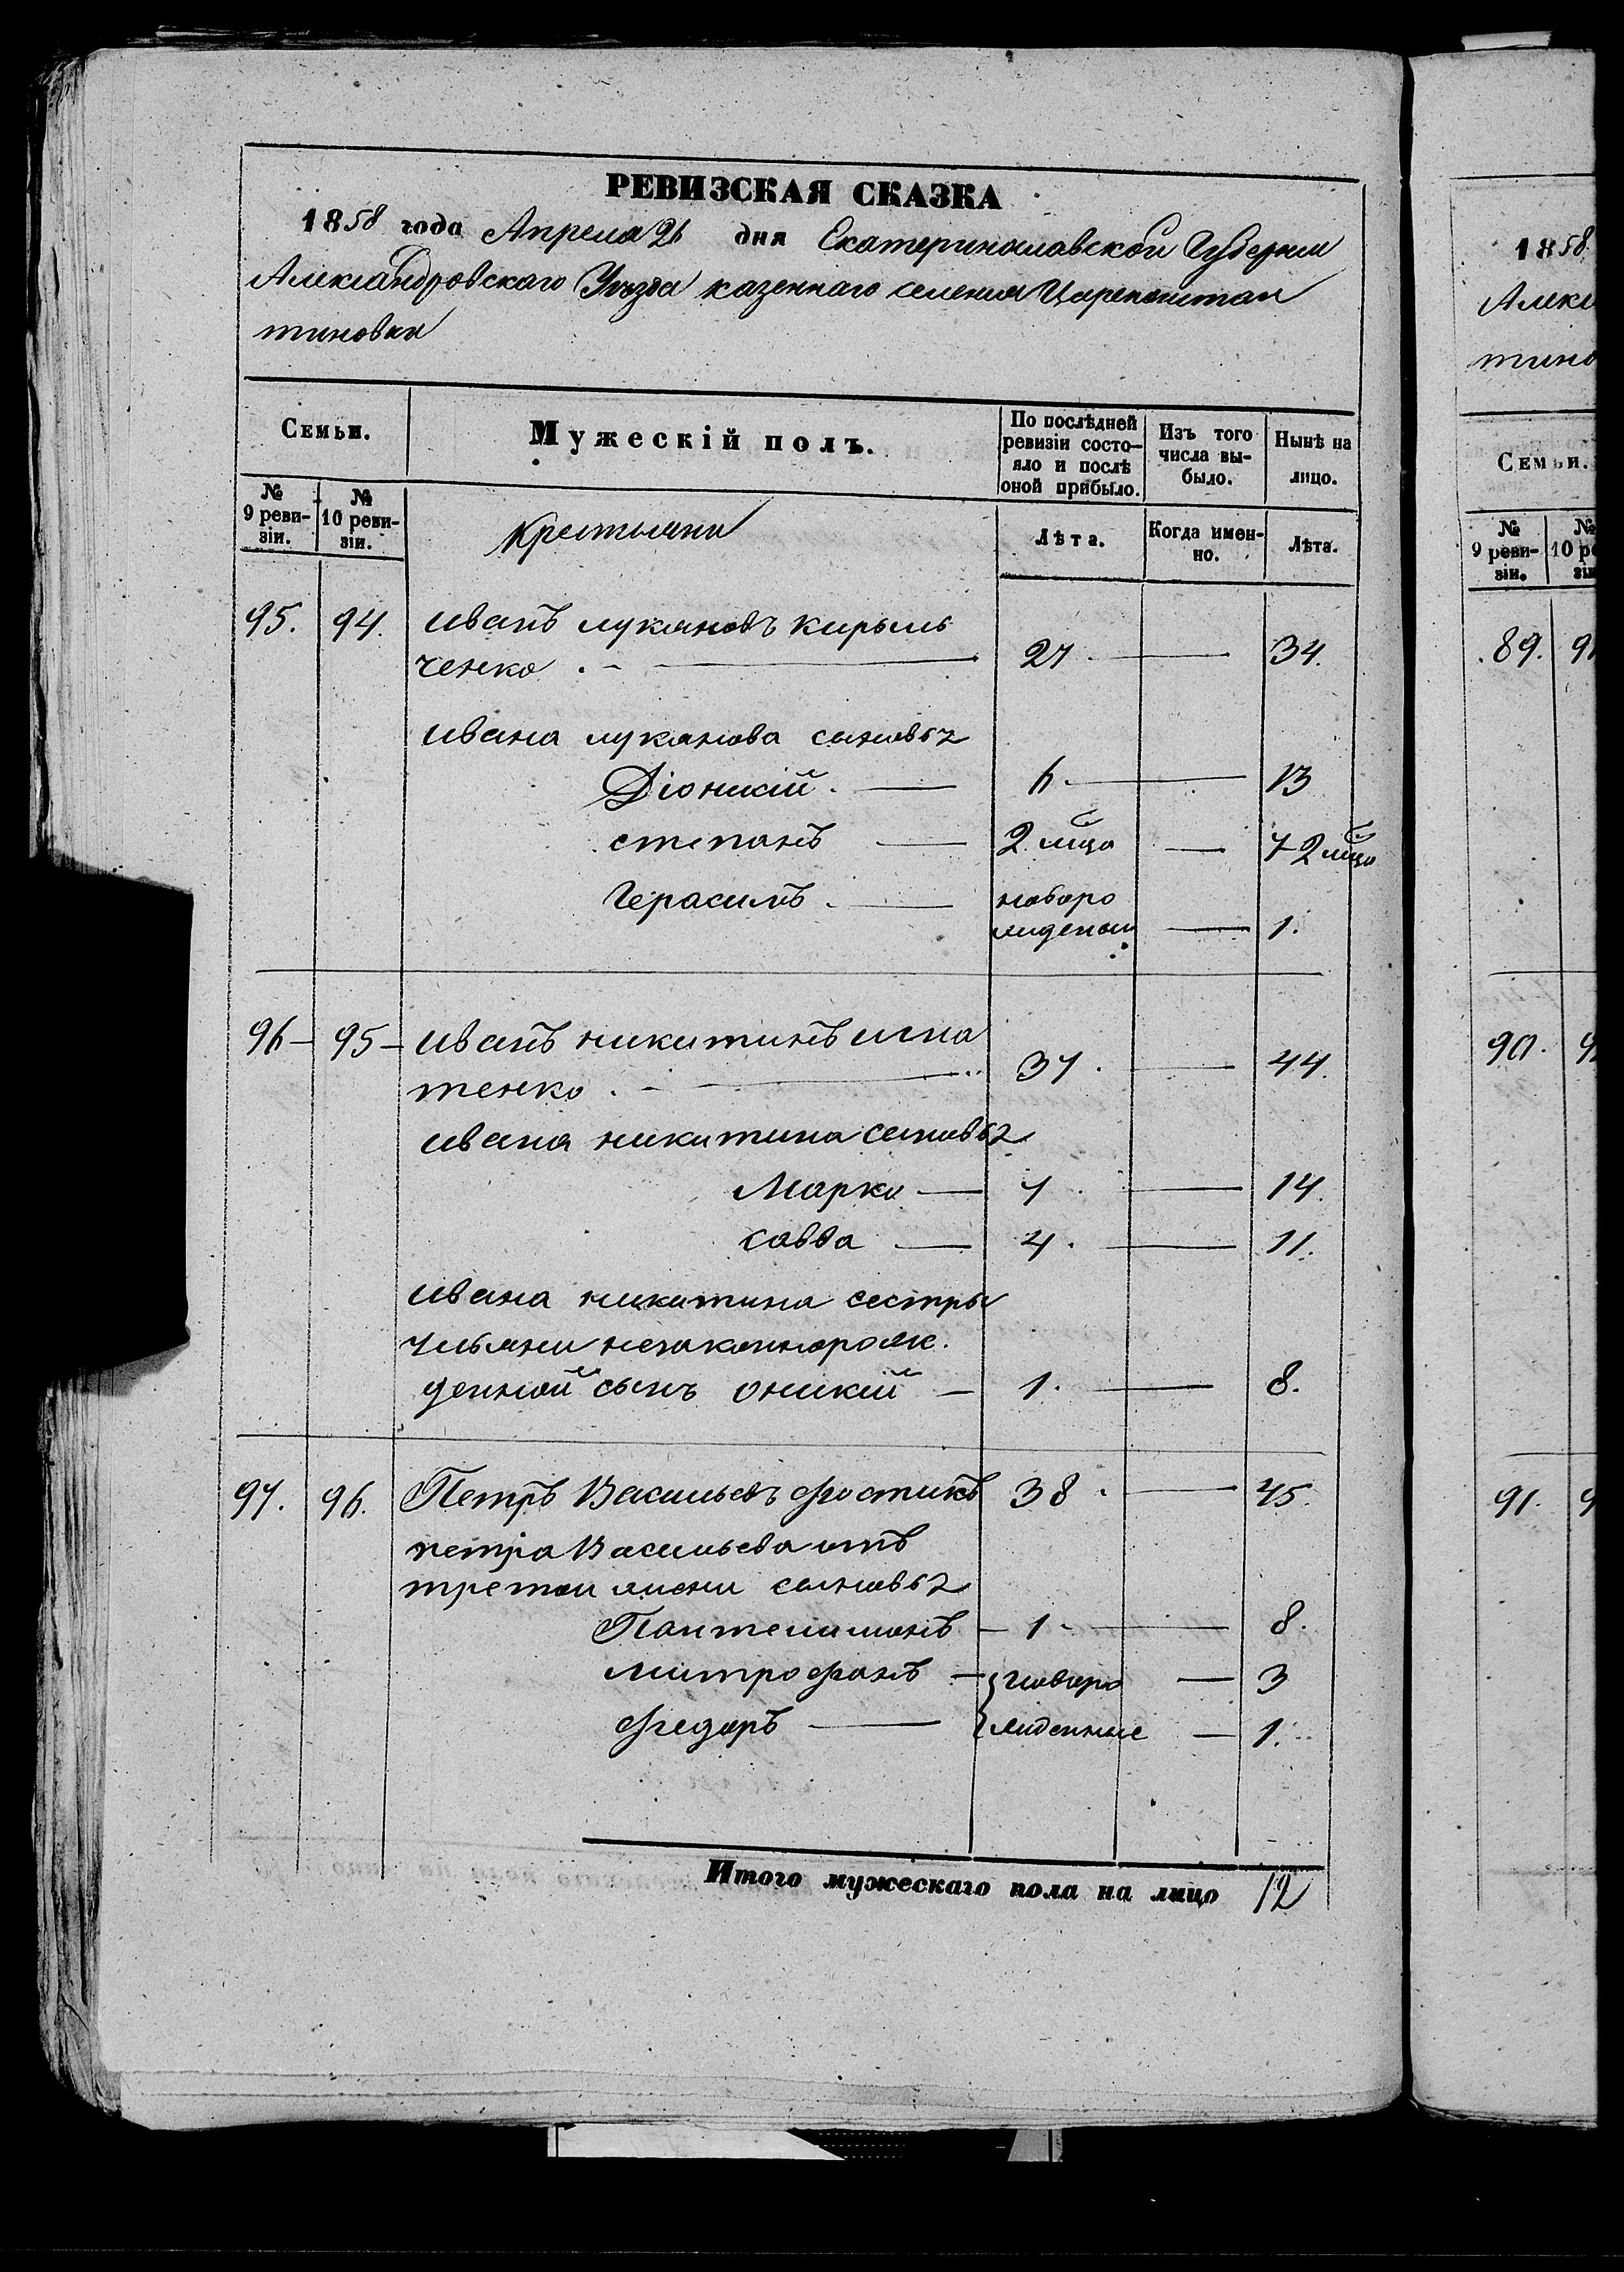 РЕВИЗСКАЯ СКАЗКА
1858 года Апреля 21 дня Екатеринославской Губернии
Александровскаго Уѣзда казеннаго селения Цареконстан
тиновки
Семьи.
Мужескій полъ.
По послѣдней ревизіи состо-
яло и послѣ оной прибыло.
Изъ того числа вы-
было.
Нынѣ на лицо.
№ 9 реви-
зіи.
№ 10 реви-
зіи.
Крестьяни
Лѣта.
Когда имен-
но.
Лѣта.
95. 94. иванъ лукяновъ кирыль
ченко . - — 27 — 34.
ивана лукянова сыновья
Діонисій. — 6. — 13
степанъ — 2 мца — 7 2 мца
Герасимъ. — новоро
жденый — 1.
96 - 95 - иванъ никитинъ игна
тенко . - — 37. — 44.
ивана никитина сыновья
Марко — 7. — 14.
савва — 4. — 11.
ивана никитина сестры
незаконнорож.
денной сынъ оникій — 1. — 8.
97. 96. Петръ Васильевъ фостикъ 38. — 45.
петра Васильева отъ
третои жени сыновья
Пантелимонъ — 1. — 8.
митрофанъ — новоро — 3
федоръ — жденные — 1.
Итого мужескаго пола на лицо 12
1858
Алекс
тино
Семьи.
№ 9 реви-
зіи.
№
10 ре
зі
89. 9
90. 9
91. 9